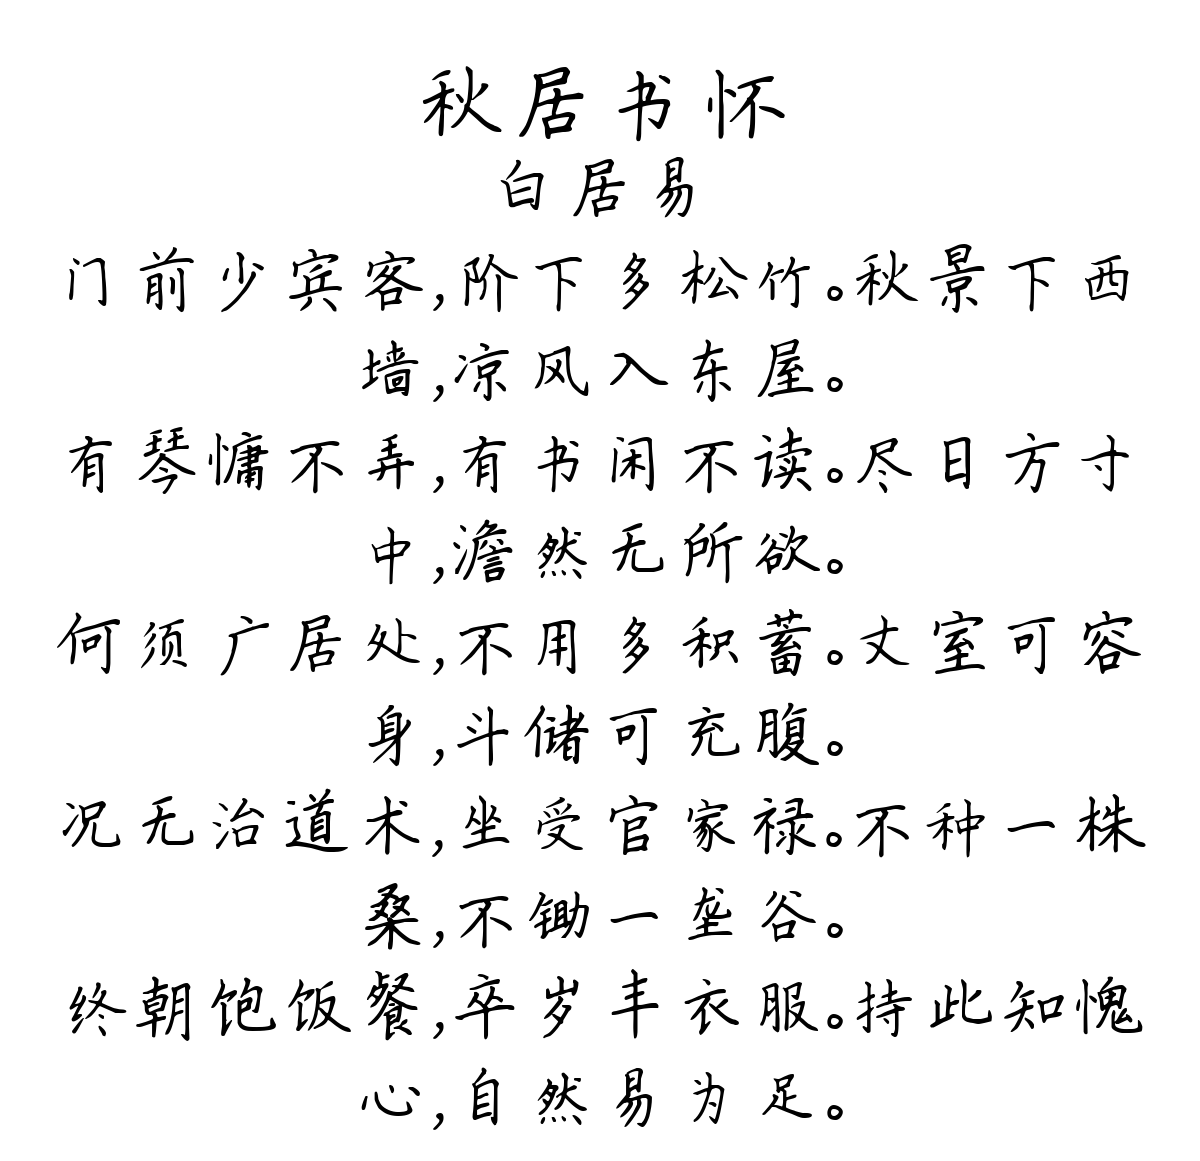 秋居书怀
白居易
门前少宾客,阶下多松竹。秋景下西
墙,凉风入东屋。
有琴慵不弄,有书闲不读。尽日方寸
中,澹然无所欲。
何须广居处,不用多积蓄。丈室可容
身,斗储可充腹。
况无治道术,坐受官家禄。不种一株
桑,不锄一垄谷。
终朝饱饭餐,卒岁丰衣服。持此知愧
心,自然易为足。